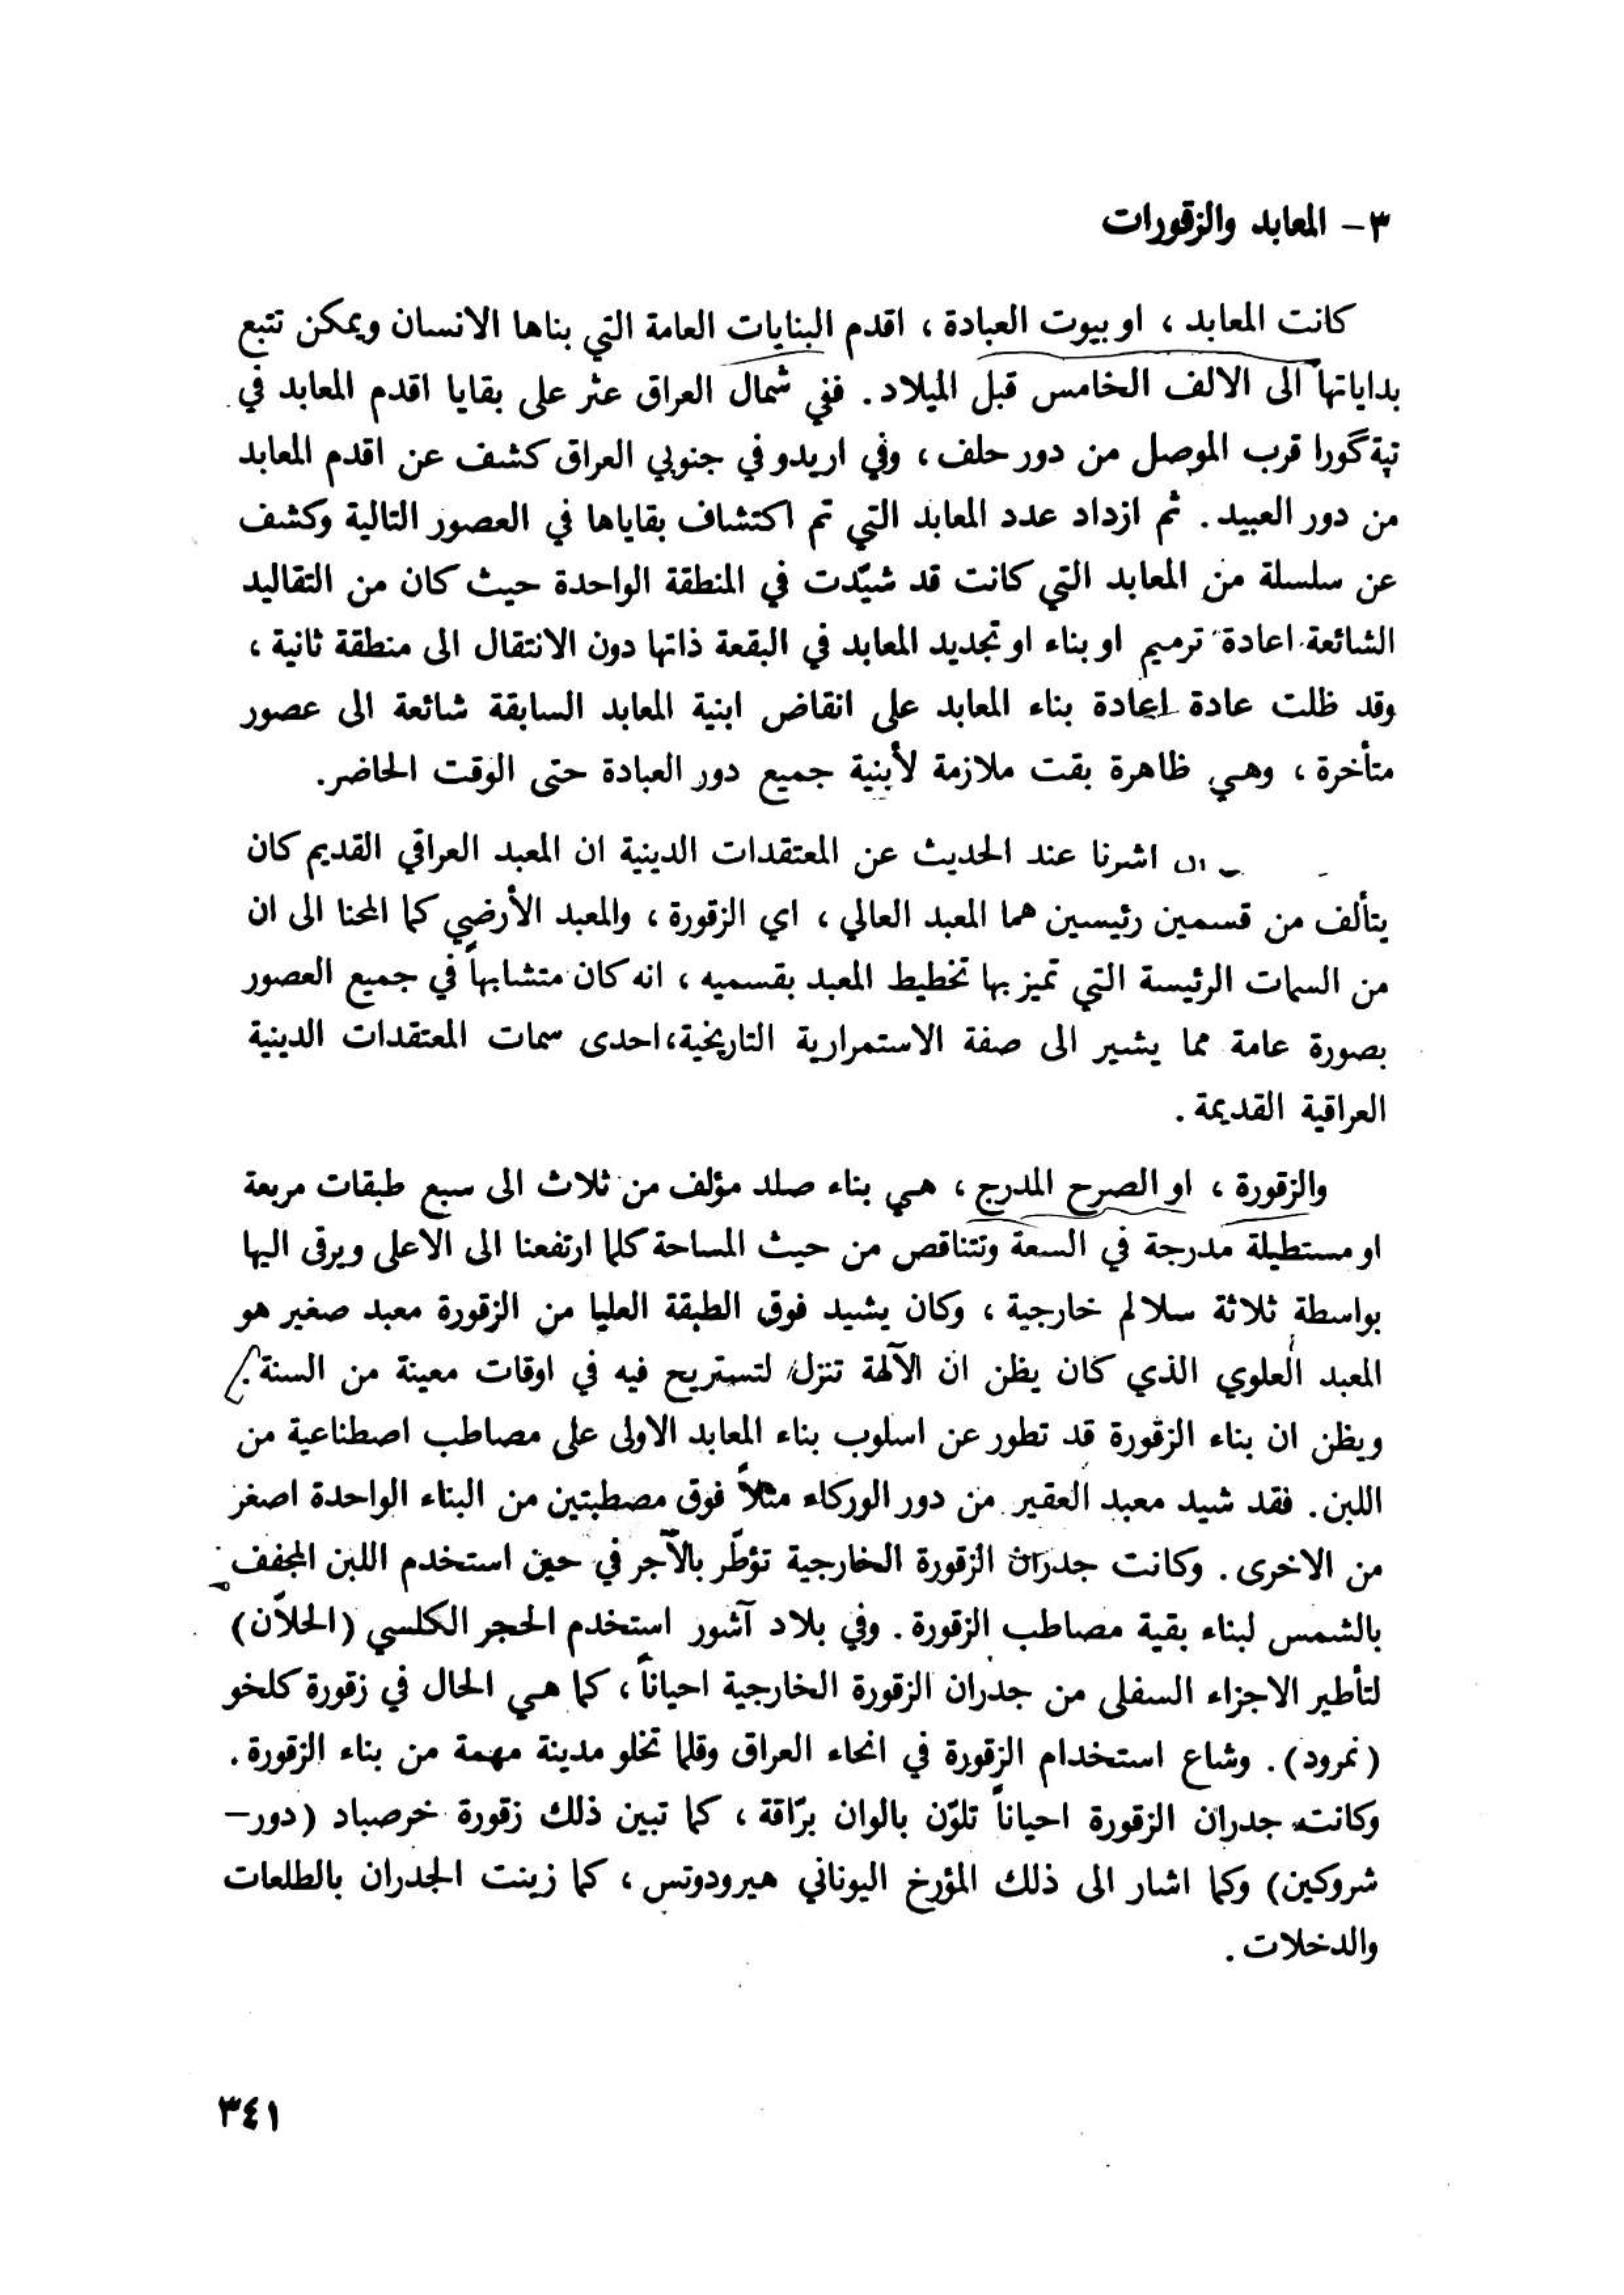 ٣- المعابد والزقورات
كانت المعابد ، او بيوت العبادة ، اقدم البنايات العامة التي بناها الانسان ويمكن تتبع
بداياتها الى الالف الخامس قبل الميلاد . ففي شمال العراق عثر على بقايا اقدم المعابد في
تپة گورا قرب الموصل من دور حلف ، وفي اريدو في جنوبي العراق كشف عن اقدم المعابد
من دور العبيد . ثم ازداد عدد المعابد التي تم اكتشاف بقاياها في العصور التالية وكشف
عن سلسلة من المعابد التي كانت قد شيّدت في المنطقة الواحدة حيث كان من التقاليد
الشائعة اعادة ترميم او بناء او تجديد المعابد في البقعة ذاتها دون الانتقال الى منطقة ثانية ،
وقد ظلت عادة إعادة بناء المعابد على انقاض ابنية المعابد السابقة شائعة الى عصور
متأخرة ، وهي ظاهرة بقت ملازمة لأبنية جميع دور العبادة حتى الوقت الحاضر .
اشرنا عند الحديث عن المعتقدات الدينية ان المعبد العراقي القديم كان
يتألف من قسمين رئيسين هما المعبد العالي ، اي الزقورة ، والمعبد الأرضي كما المحنا الى ان
من السمات الرئيسة التي تميز بها تخطيط المعبد بقسميه ، انه كان متشابهاً في جميع العصور
بصورة عامة مما يشير الى صفة الاستمرارية التاريخية ، احدى سمات المعتقدات الدينية
العراقية القديمة .
والزقورة ، او الصرح المدرج ، هي بناء صلد مؤلف من ثلاث الى سبع طبقات مربعة
او مستطيلة مدرجة في السعة وتتناقص من حيث المساحة كلما ارتفعنا الى الاعلى ويرقى اليها
بواسطة ثلاثة سلالم خارجية ، وكان يشيد فوق الطبقة العليا من الزقورة معبد صغير هو
المعبد العلوي الذي كان يظن ان الآلهة تنزل لتستريح فيه في اوقات معينة من السنة .
ويظن ان بناء الزقورة قد تطور عن اسلوب بناء المعابد الاولى على مصاطب اصطناعية من
اللبن . فقد شيد معبد العقير من دور الوركاء مثلاً فوق مصطبتين من البناء الواحدة اصغر
من الاخرى . وكانت جدران الزقورة الخارجية تؤطّر بالآجر في حين استخدم اللبن المجفف
بالشمس لبناء بقية مصاطب الزقورة . وفي بلاد آشور استخدم الحجر الكلسي (الحلاّن)
لتأطير الاجزاء السفلى من جدران الزقورة الخارجية احياناً ، كما هي الحال في زقورة كلخو
(نمرود) . وشاع استخدام الزقورة في انحاء العراق وقلما تخلو مدينة مهمة من بناء الزقورة .
وكانت جدران الزقورة احياناً تلوّن بالوان برّاقة ، كما تبين ذلك زقورة خرصباد (دور-
شروكين) وكما اشار الى ذلك المؤرخ اليوناني هيرودوتس ، كما زينت الجدران بالطلعات
والدخلات .
٣٤١